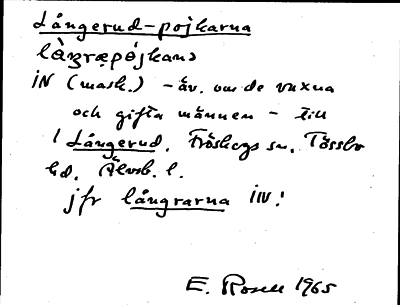 Långerud-pojkarna
làŋræpǿjkanɔ
iN (mask.) – äv. om de vuxna
och gifta männen – till
1 Långerud, Fröskogs sn, Tössbo
hd, Älvsb. l.
jfr långrarna iN!
E. Rosell 1965